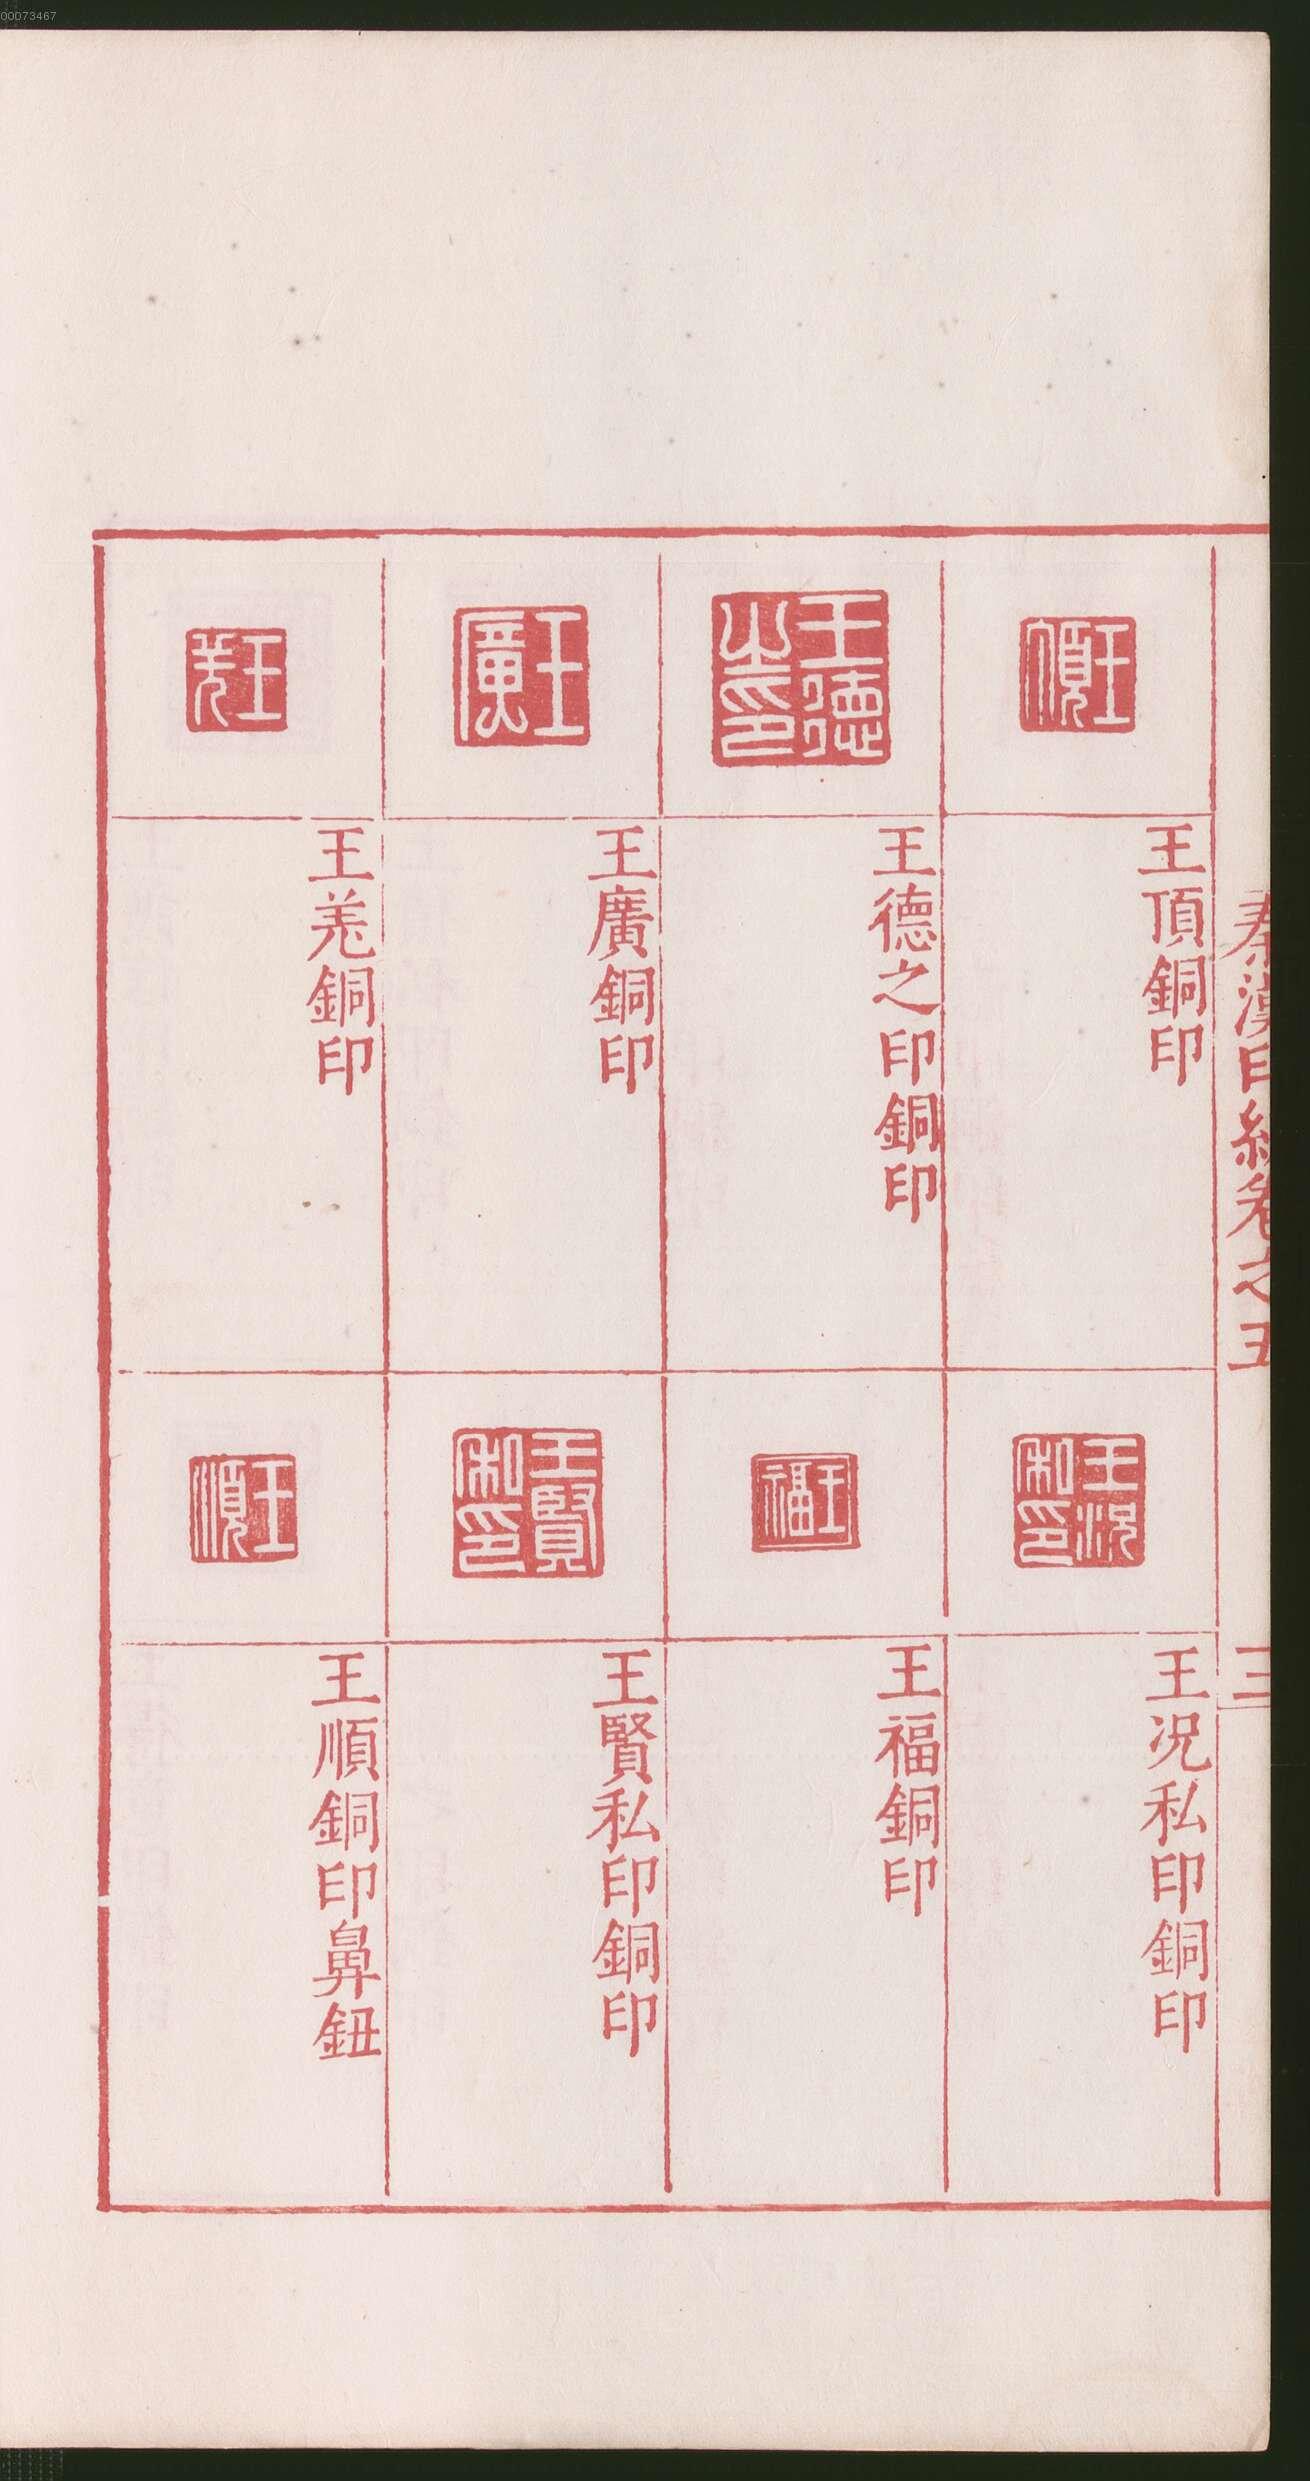 00073467
秦漢印統卷之五
三
王頂
王頂銅印
王德之印
王德之印銅印
王廣
王廣銅印
王羗
王羗銅印
王况私印
王况私印銅印
王福
王福銅印
王賢私印
王賢私印銅印
王順
王順銅印鼻鈕